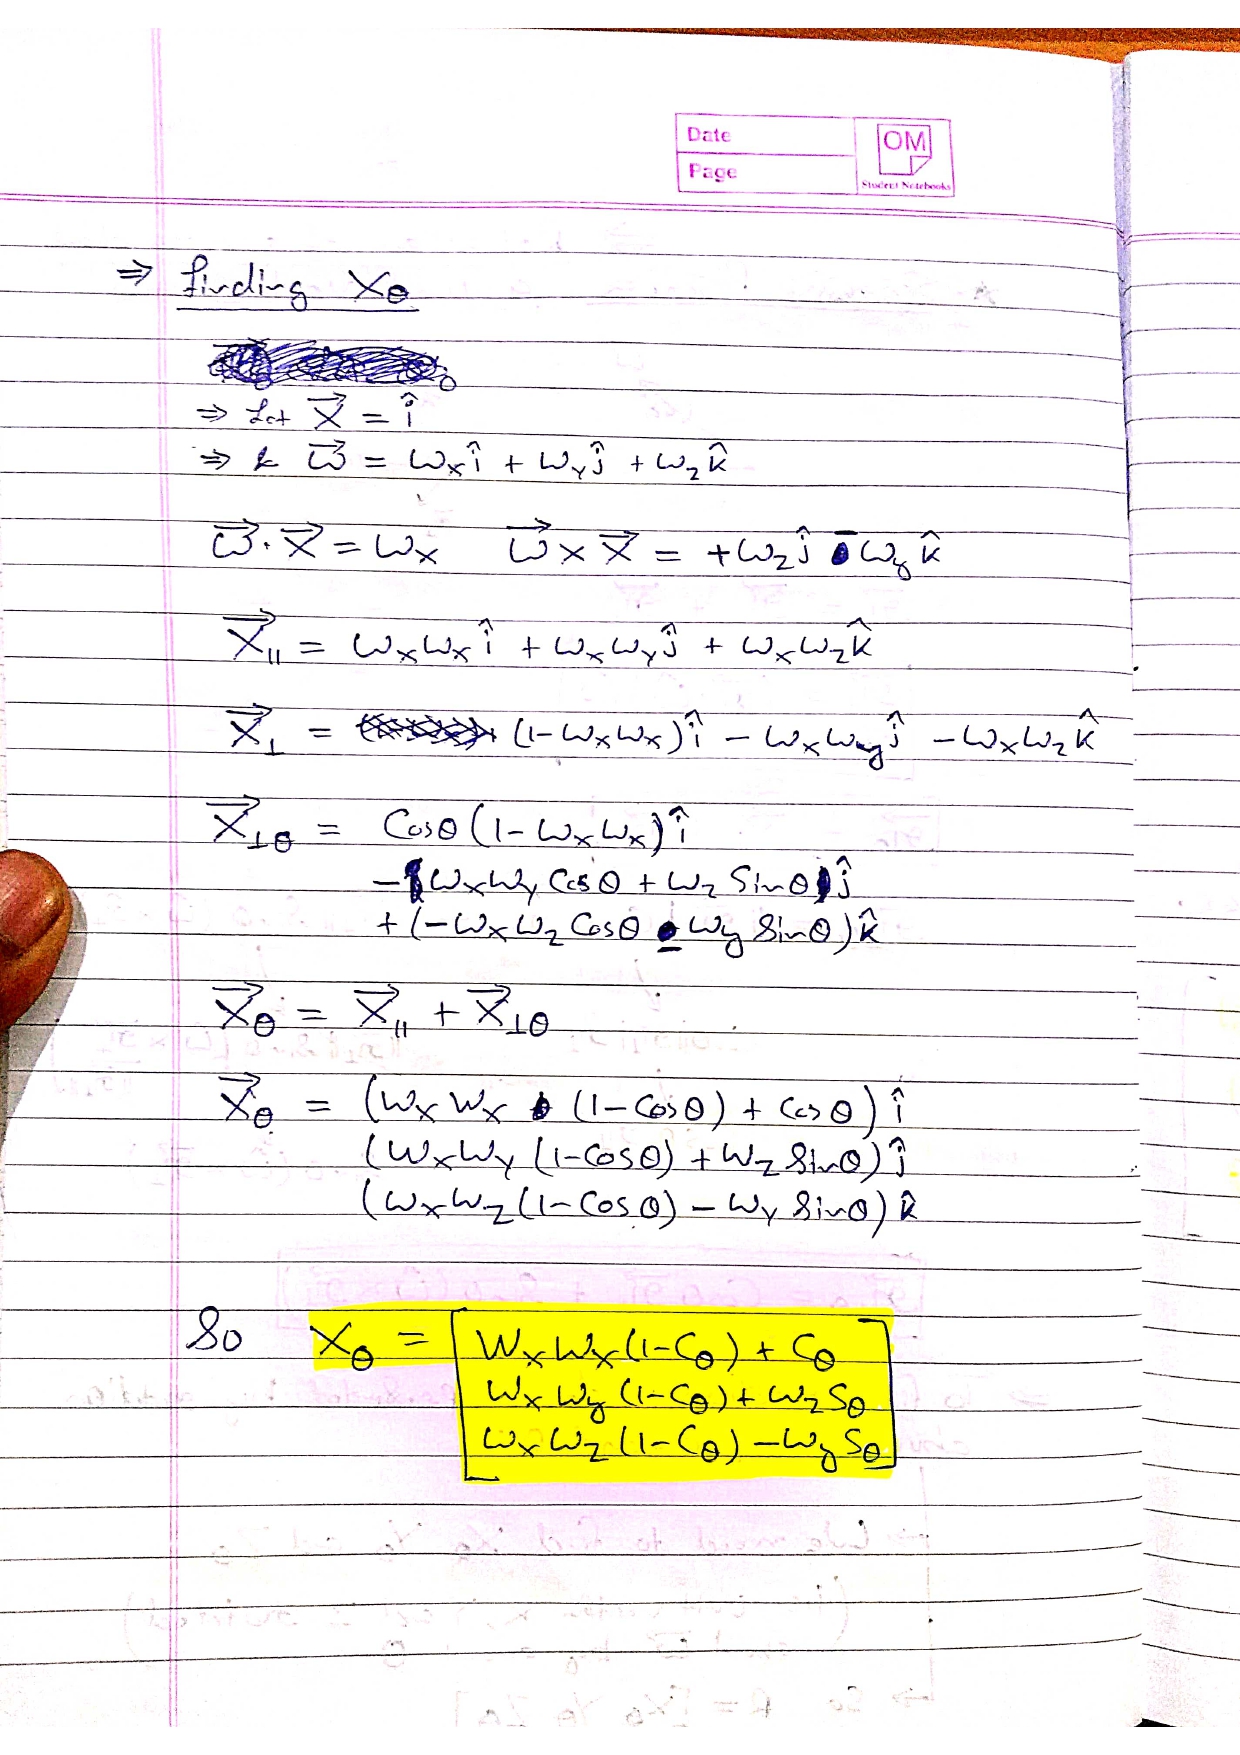 Date
Page
OM
Student Notebooks
⇒ finding Xθ
⇒ Let X⃗ = î
⇒ & ω⃗ = ωxî + ωyĵ + ωzk̂
ω⃗·X⃗ = ωx ω⃗ × X⃗ = +ωzĵ - ωyk̂
X⃗∥ = ωxωxî + ωxωyĵ + ωxωzk̂
X⃗⊥ = (1-ωxωx)î - ωxωyĵ - ωxωzk̂
X⃗⊥θ = Cosθ(1-ωxωx)î
-(ωxωy Cosθ + ωz Sinθ)ĵ
+(-ωxωz Cosθ - ωy Sinθ)k̂
X⃗θ = X⃗∥ + X⃗⊥θ
X⃗θ = (ωxωx (1-Cosθ) + Cosθ) î
(ωxωy (1-Cosθ) + ωz Sinθ) ĵ
(ωxωz (1-Cosθ) - ωy Sinθ) k̂
So Xθ = [ωxωx(1-Cθ) + Cθ
ωxωy(1-Cθ) + ωz Sθ
ωxωz(1-Cθ) - ωy Sθ]